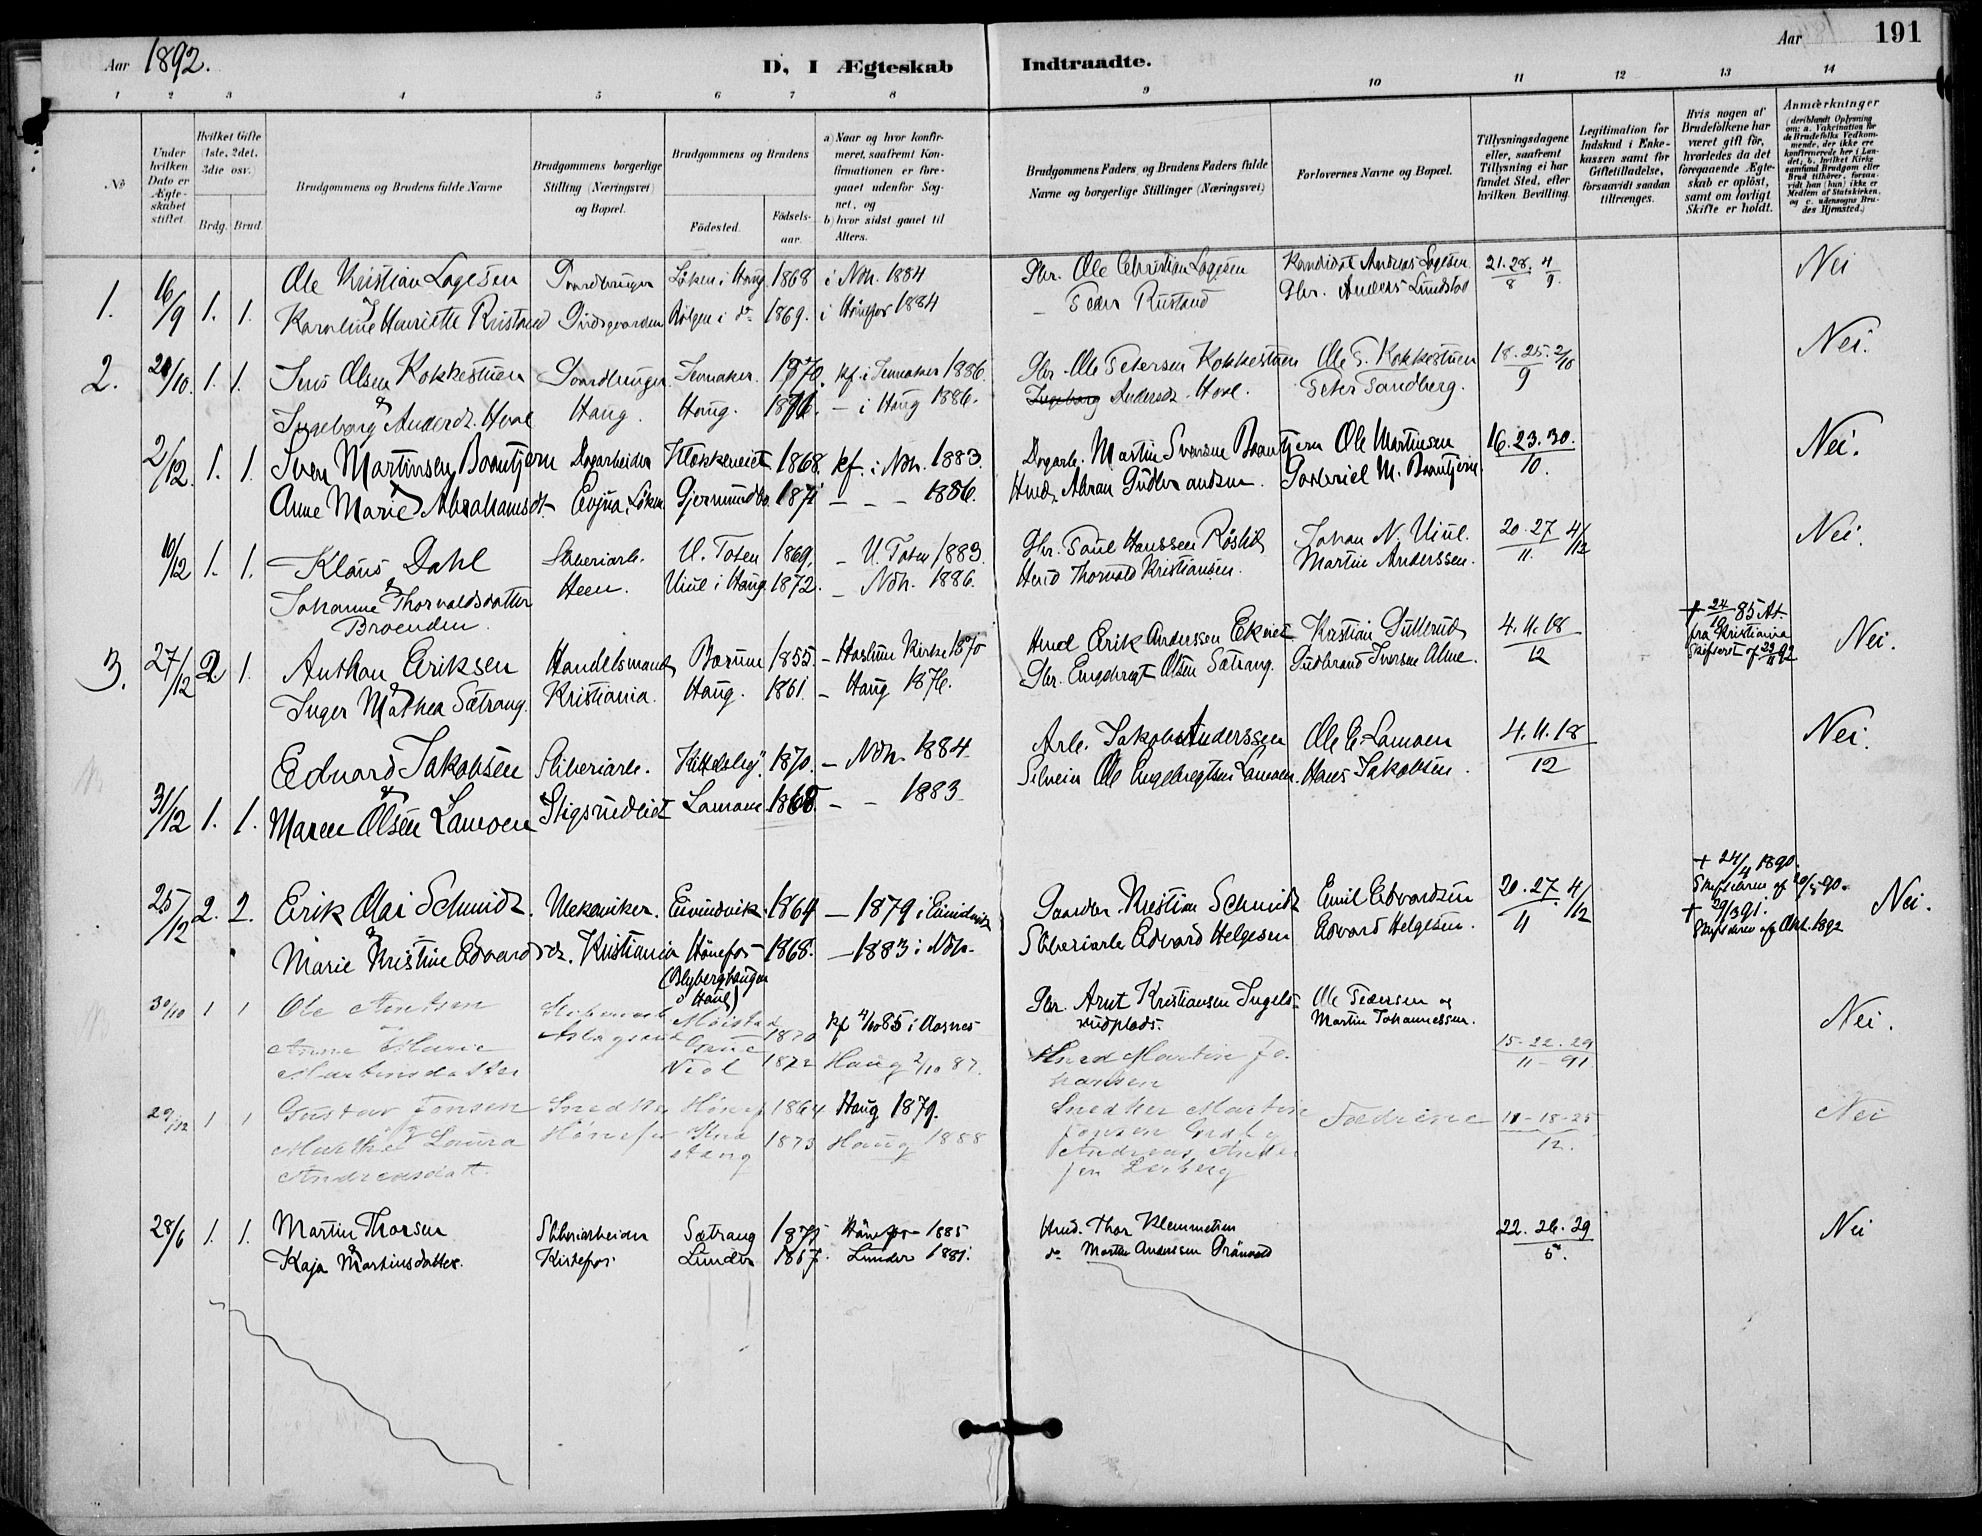 Aar 1892.
D, I Ægteskab Indtraadte.
Aar 191
1 2 3 4 5 6 7 8 9 10 11 12 13 14
No
Under hvilken Dato er Ægteskabet stiftet.
Hvilket Gifte (1ste, 2det, 3die osv.)
Brdg. Brud.
Brudgommens og Brudens fulde Navne
Brudgommens borgerlige Stilling (Næringsvei) og Bopæl.
Brudgommens og Brudens
Fødested.
Fødselsaar.
a) Naar og hvor konfirmeret, saafremt Konfirmationen er foregaaet udenfor Sognet, og
b) hvor sidst gaaet til Alters.
Brudgommens Faders og Brudens Faders fulde Navne og borgerlige Stillinger (Næringsvei)
Forlovernes Navne og Bopæl.
Tillysningsdagene eller, saafremt Tillysning ei har fundet Sted, efter hvilken Bevilling.
Legitimation for Indskud i Enkekassen samt for Giftetilladelse, forsaavidt saadan tiltrænges.
Hvis nogen af Brudefolkene har været gift før, hvorledes da det foregaaende Ægteskab er opløst, samt om lovligt Skifte er holdt.
Anmærkninger (deriblandt Oplysning om: a. Vakcination for de Brudefolks Vedkommende, der ikke ere konfirmerede her i Landet; b. hvilket Kirkesamfund Brudgom eller Brud tilhører, forsaavidt han (hun) ikke er Medlem af Statskirken, og c. udensogns Brudes Hjemsted.)
1. 16/9 1. 1. Ole Kristian Lagesen Gaardbruger Løken i Haug 1868 i Ndh. 1884 Gbr. Ole Christian Lagesen Kandidat Andreas Lagesen 21. 28/8 4/9 Nei
& Karoline Henriette Rustand 1869. i Hönefos 1884 – Peder Rustand Gbr. Anders Lundstad
2. 2/10. 1. 1. Jens Olsen Kokkestuen Gaardbruger Jevnaker. 1870. kf. i Jevnaker 1886. Gbr. Ole Petersen Kokkestuen Ole P. Kokkestuen 18. 25/9 2/10 Nei.
& Ingeborg Andersdt. Hval Haug. Haug. – i Haug 1886. Ingeborg Andersdt. Hval. Peter Sandberg.
2/12. 1. 1. Sven Martinsen Boentjern Dagarbeider Klokkereiet 1868. kf. i Ndh. 1883. Dagarb. Martin Svensen Boentjern Ole Martinsen 16. 23. 30./10. Nei.
& Anne Marie Abrahamsdt. Gjermundbo 1871 – – – 1886. Husm. Abran Gudbrandsen. Gabriel M. Boentjern.
10/12 1. 1. Klaus Dahl Sliberiarb. V. Toten 1869. – V. Toten 1883. Gbr. Poul Hanssen Røstid Johan N. Viul. 20. 27/11. 4/12 Nei.
& Johanne Thorvaldsdatter Heen. Viul i Haug. 1872. – Ndh. 1886. Husmd Thorvald Kristiansen. Martin Anderssen.
Broenden.
3. 27/12 2 1. Anthon Eriksen Handelsmand Bærum 1855. – Haslum Kirke 1870 Husmd Erik Anderssen Ekeiet Kristian Gullerud 4. 11. 18/12 † 24/10 85 At. fra Kristiania Skifteret af 29/11 92 Nei.
& Inger Mathea Sætrang. Kristiania. Haug. 1861. – Haug 1876. Gbr. Engebregt Olsen Sætrang. Gudbrand Iversen Alme.
Edvard Jakobsen Sliberiarb. Kittelsby. 1870. – Ndh. 1884. Arb. Jakob Anderssen Ole E. Lamoen 4. 11. 18/12 Nei.
31/12 1. 1. & Maren Olsen Lamoen Stigsrudeiet Lamoen – – 1883. Selveier Ole Engebregtsen Lamoen. Hans Jakobsen.
25/12 2. 2. Erik Olai Schmidt. Mekaniker. Eivindvik. 1864 – 1879 i Eivindvik Gaardbr. Kristian Schmidt Emil Edvardsen 20. 27/11 4/12 † 24/4 1890. Skifteret af 20/5 90. † 29/3 91. Skifteret af Okt. 1892 Nei.
& Marie Kristine Edvardsdt. Kristiania Hönefos 1868. – 1883 i Ndh. Sliberiarb. Edvard Helgesen Edvard Helgesen.
30/10 1 1 Ole Arntsen kf 4/10 85 i Aasnes Gbr. Arnt Kristiansen Ingelsrudplads. Ole Pedersen og Martin Johannessen. 15-22. 29/11 - 91 Nei.
& Anne Marie Martinsdatter Viol 1872 Haug 2/10 87. Husmd Martin Johansen
29/12 1 1 Gustav Jonsen Snedker Hönef 1864 Haug 1879. Snedker Martin Jonsen Fædrene 11 - 18 - 25/12. Nei
& Marthe Laura Andreasdatt. Hönefos Haug 1873 Haug 1888 Andreas
28/6 1. 1. Martin Thorsen Sliberiarbeider Sætrang Hönefos 1885 Husmd. Thor Klemmetsen 22. 26. 29/5. Nei
& Kaja Martinsdatter. Kistefos Lunder Lunder 1881. do Martin Anderssen Grönvold